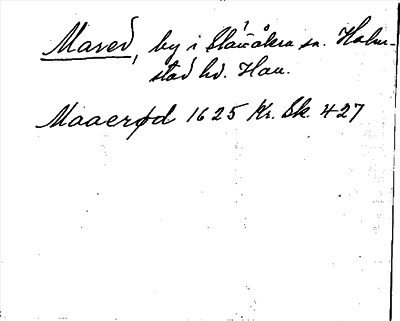 Mared, by i Slättåkra sn. Halm-
stad hd. Hall.
Maaerød 1625 Kr. Sk. 427